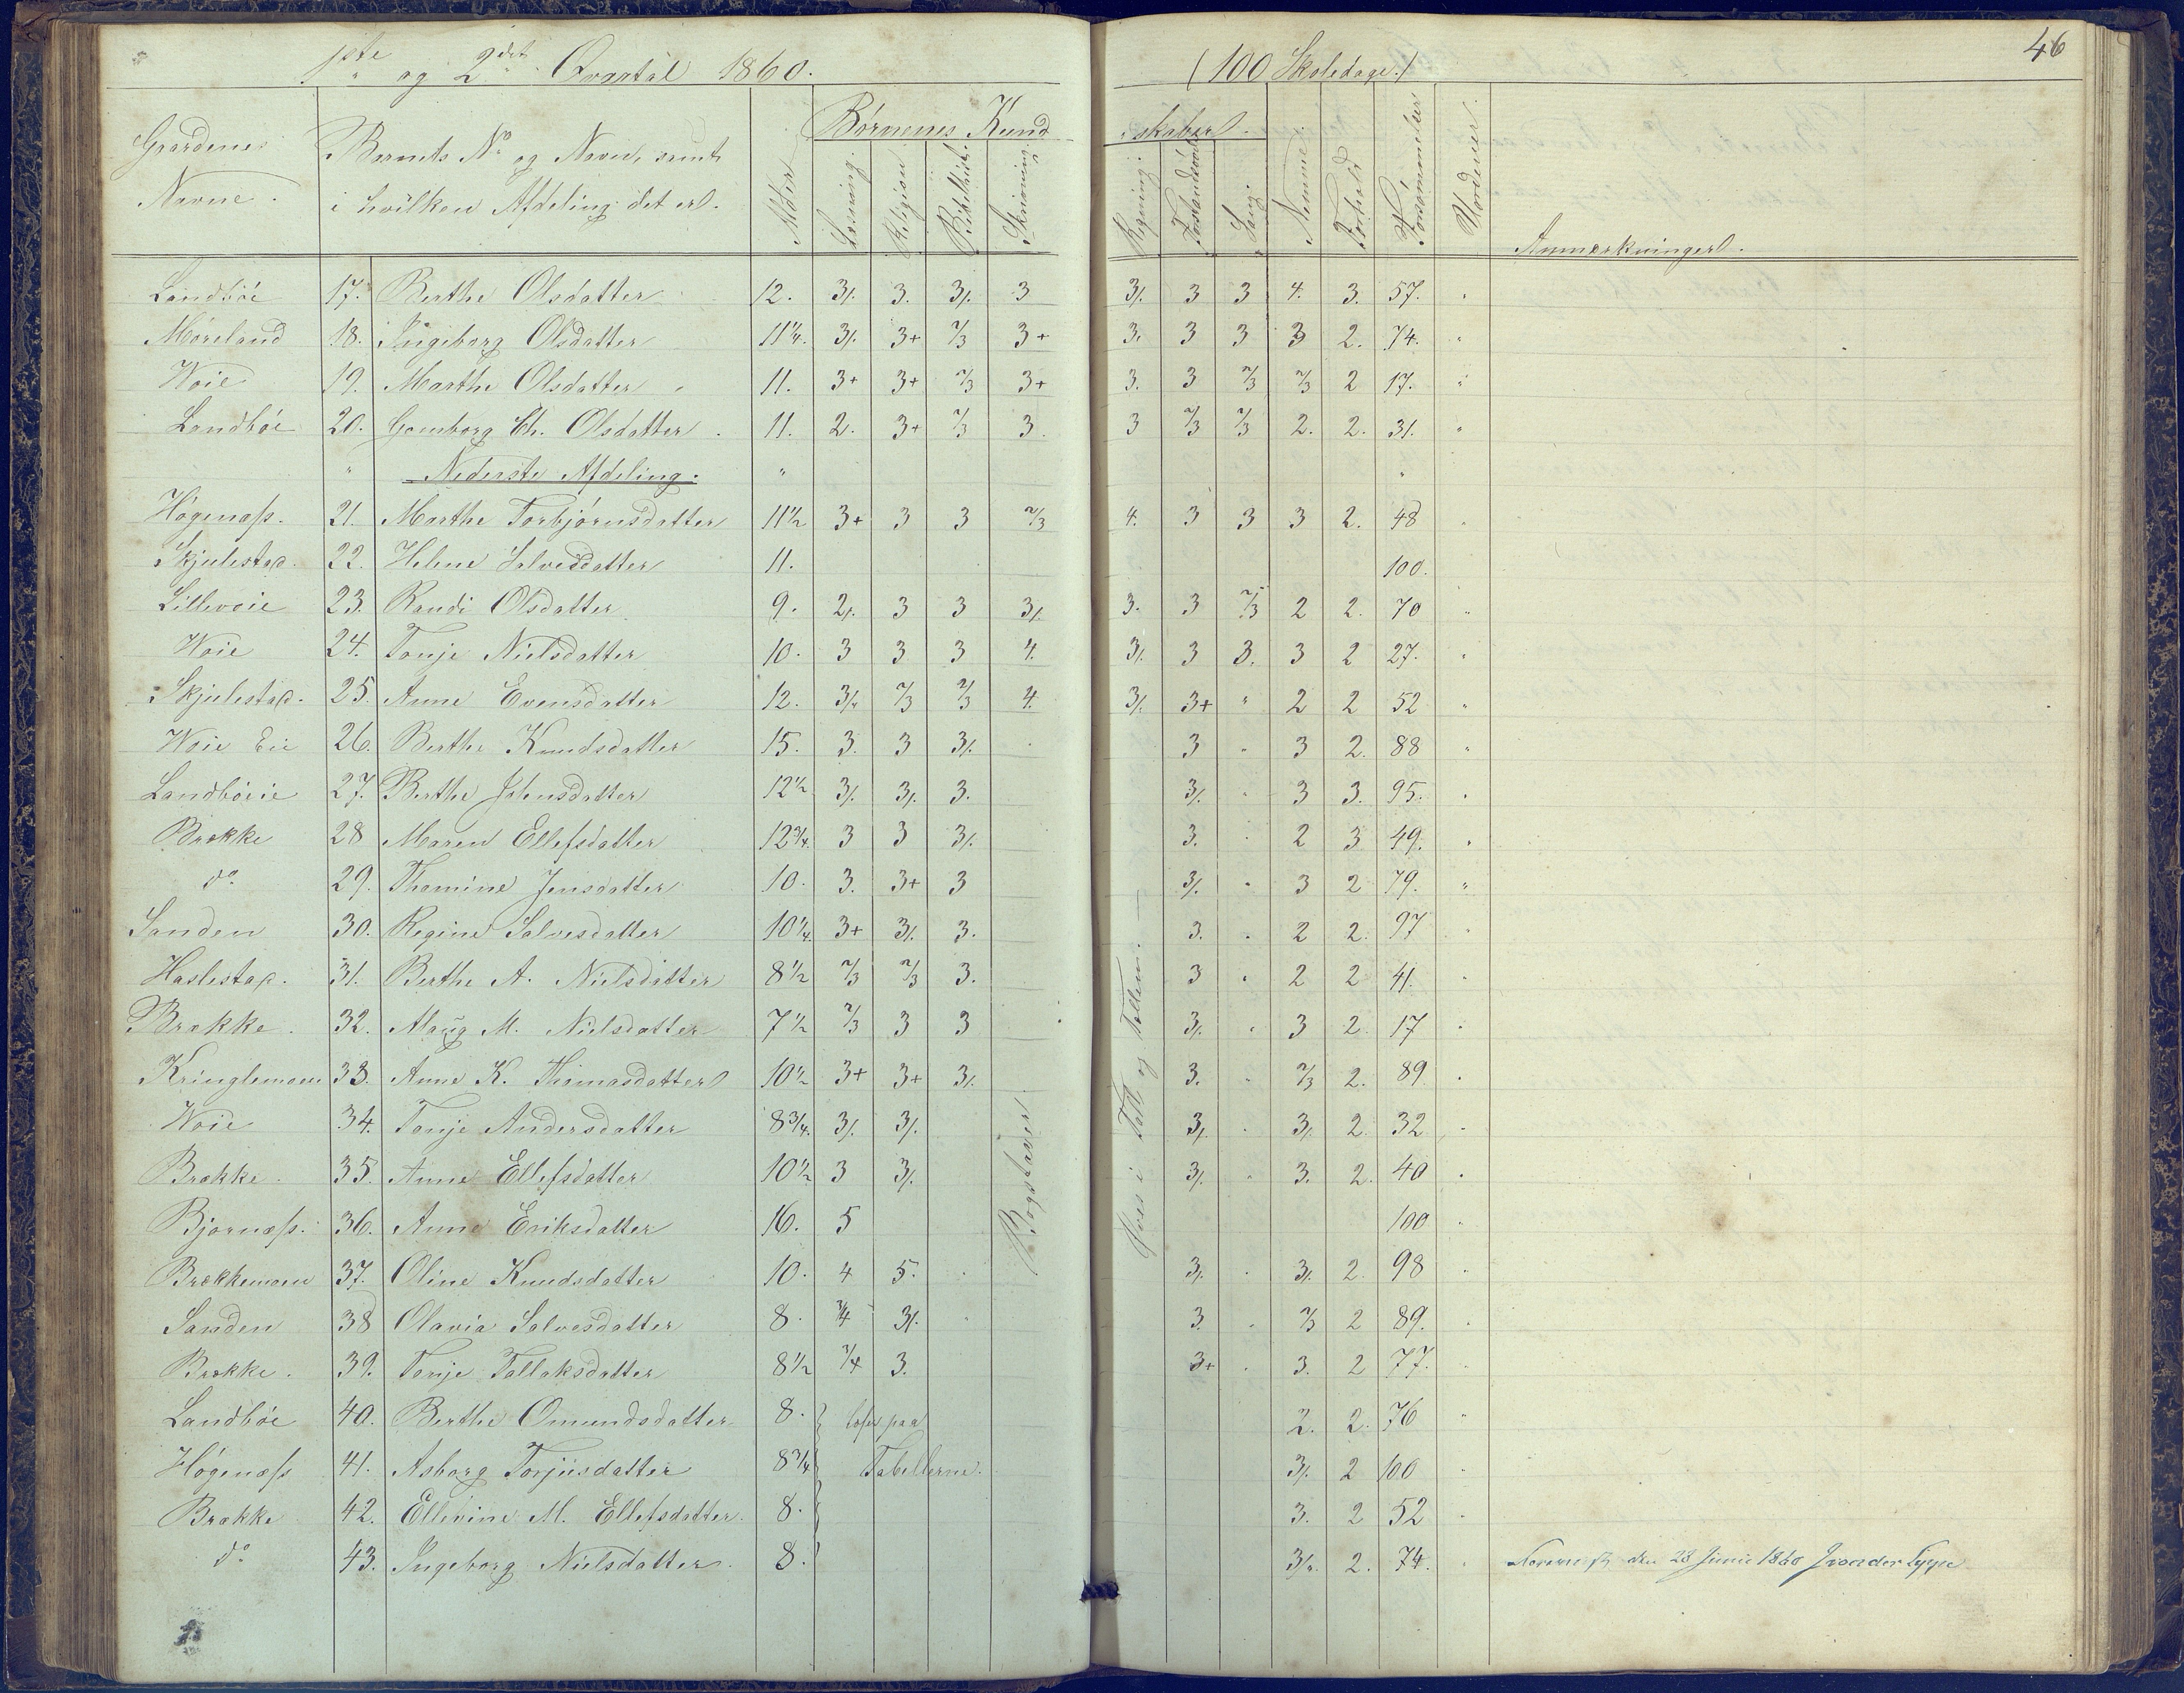 1ste og 2det Qvartal 1860. (100 Skoledage.) 46
Gaardenes Navne. Barnets No og Navn, samt i hvilken Afdeling det er. Alder Børnenes Kund skaber. Anmærkninger.
Læsning. Religion. Bibelhist. Skrivning. Regning. Forstandsøvelse Sang. Nemme. Forhold Forsømmelser Udeneier.
Landbøe 17. Berthe Olsdatter 12. 3/. 3. 3/. 3 3/. 3 3 4. 3. 57. "
Møreland 18. Ingeborg Olsdatter 11 1/4. 3/. 3+ 2/3 3+ 3. 3 3 3 2. 74. "
Woie 19. Marthe Olsdatter 11. 3+ 3+ 2/3 3+ 3. 3 2/3 2/3 2 17. "
Landbøe 20. Gomborg Ch. Olsdatter 11. 2. 3+ 2/3 3. 3 2/3 2/3 2. 2. 31. "
" Nederste Afdeling. " "
Høgenæss. 21. Marthe Torbjørnsdatter 11 1/2 3+ 3 3 2/3 4. 3 3 3 2. 48
Skjulestad. 22. Helene Salvesdatter 11. 100.
Lillevoie 23. Randi Olsdatter 9. 2/. 3 3 3/. 3. 3 2/3 2 2. 70 "
Woie 24. Tonje Nielsdatter 10. 3 3 3 4. 3/. 3 3. 3 2 27. "
Skjulestad. 25. Anne Evensdatter 12. 3/. 2/3 2/3 4. 3/. 3+ " 2 2 52 "
Woie Eie 26. Berthe Knudsdatter 15. 3. 3 3/. 3 " 3 2. 88 "
Landbøeie 27. Berthe Johnsdatter 12 1/2 3/. 3/. 3. 3/. 3 3. 95. "
Brække 28 Maren Ellefsdatter 12 3/4. 3 3 3/. 3. 2 3 49. "
do. 29. Thomine Jensdatter 10. 3. 3+ 3 3/. " 3 2 79. "
Sanden 30. Regine Salvesdatter 10 1/4. 3+ 3/. 3. 3. 2 2. 97 "
Haslestad. 31. Berthe A. Nielsdatter 8 1/2 2/3 2/3 3. 3 2 2 41. "
Brække. 32. Alaug M. Nielsdatter 7 1/2 2/3 3 3 3/. 3 2. 17 "
Kringlemoen 33. Anne K. Thomasdatter 10 1/2 3+ 3+ 3/. 3. 2/3 2. 89. "
Woie 34. Tonje Andersdatter 8 3/4. 3/. 3/. 3/. 3/. 2. 32 "
Brække. 35. Anne Ellefsdatter 10 1/2 3 3/. 3/. 3. 2. 40 "
Bjørnæss. 36. Anne Eriksdatter 16. 5 100 "
Brækkemoen 37. Oline Knudsdatter 10. 4 5. 3/. 3/. 2. 98 "
Sanden 38 Olavia Salvesdatter 8. 3/4 3/. 3. 2/3 2 89. "
Brække. 39. Tonje Tallaksdatter 8 1/2 3/4 3. 3+ 3. 2 77. "
Landbøe 40. Berthe Omundsdatter 8. læser paa 2. 2. 76 "
Høgenæss 41. Asborg Torjusdatter 8 3/4 Tabellerne. 3/. 2 100 "
Brække 42. Ellevine M. Ellefsdatter. 8. 3. 2 52 "
do 43. Ingeborg Nielsdatter. 8. 3/. 2. 74. " den 23 Junii 1860
Bogstaver.
Øves i Tall og Tællen.